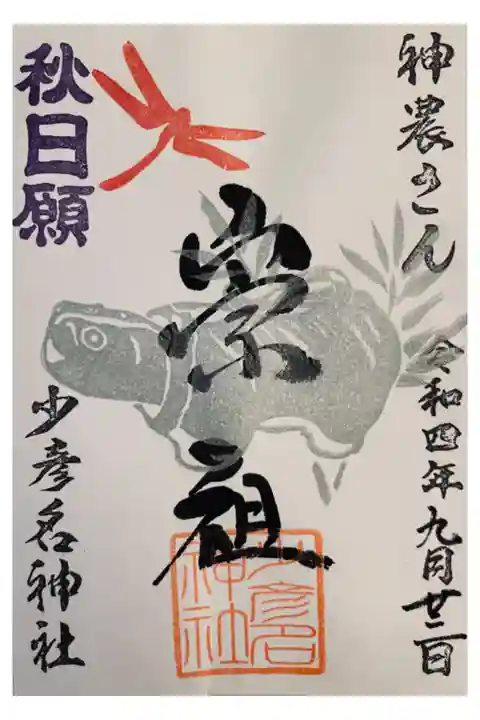 神農さん
令和四年九月廿三日
崇祖
少彦名神社
秋日願
少彦名神社